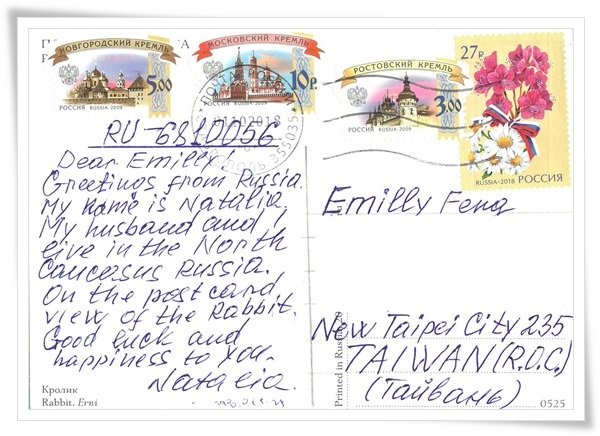 НОВГОРОДСКИЙ КРЕМЛЬ
5.00
РОССИЯ RUSSIA·2009
МОСКОВСКИЙ КРЕМЛЬ
10 Р.
РОССИЯ RUSSIA·2009
РОСТОВСКИЙ КРЕМЛЬ
3.00
РОССИЯ RUSSIA·2009
27 Р.
RUSSIA·2018 РОССИЯ
01102018
355035
RU-6810056
Dear Emilly.
Greetings from Russia.
My name is Natalia.
My husband and I
live in the North
Caucasus Russia.
On the postcard
view of the Rabbit.
Good luck and
happiness to you.
Natalia.
Кролик
Rabbit. Erni
Printed in Russia
Emilly Feng
New Taipei City 235
TAIWAN (R.O.C.)
(Тайвань)
0525